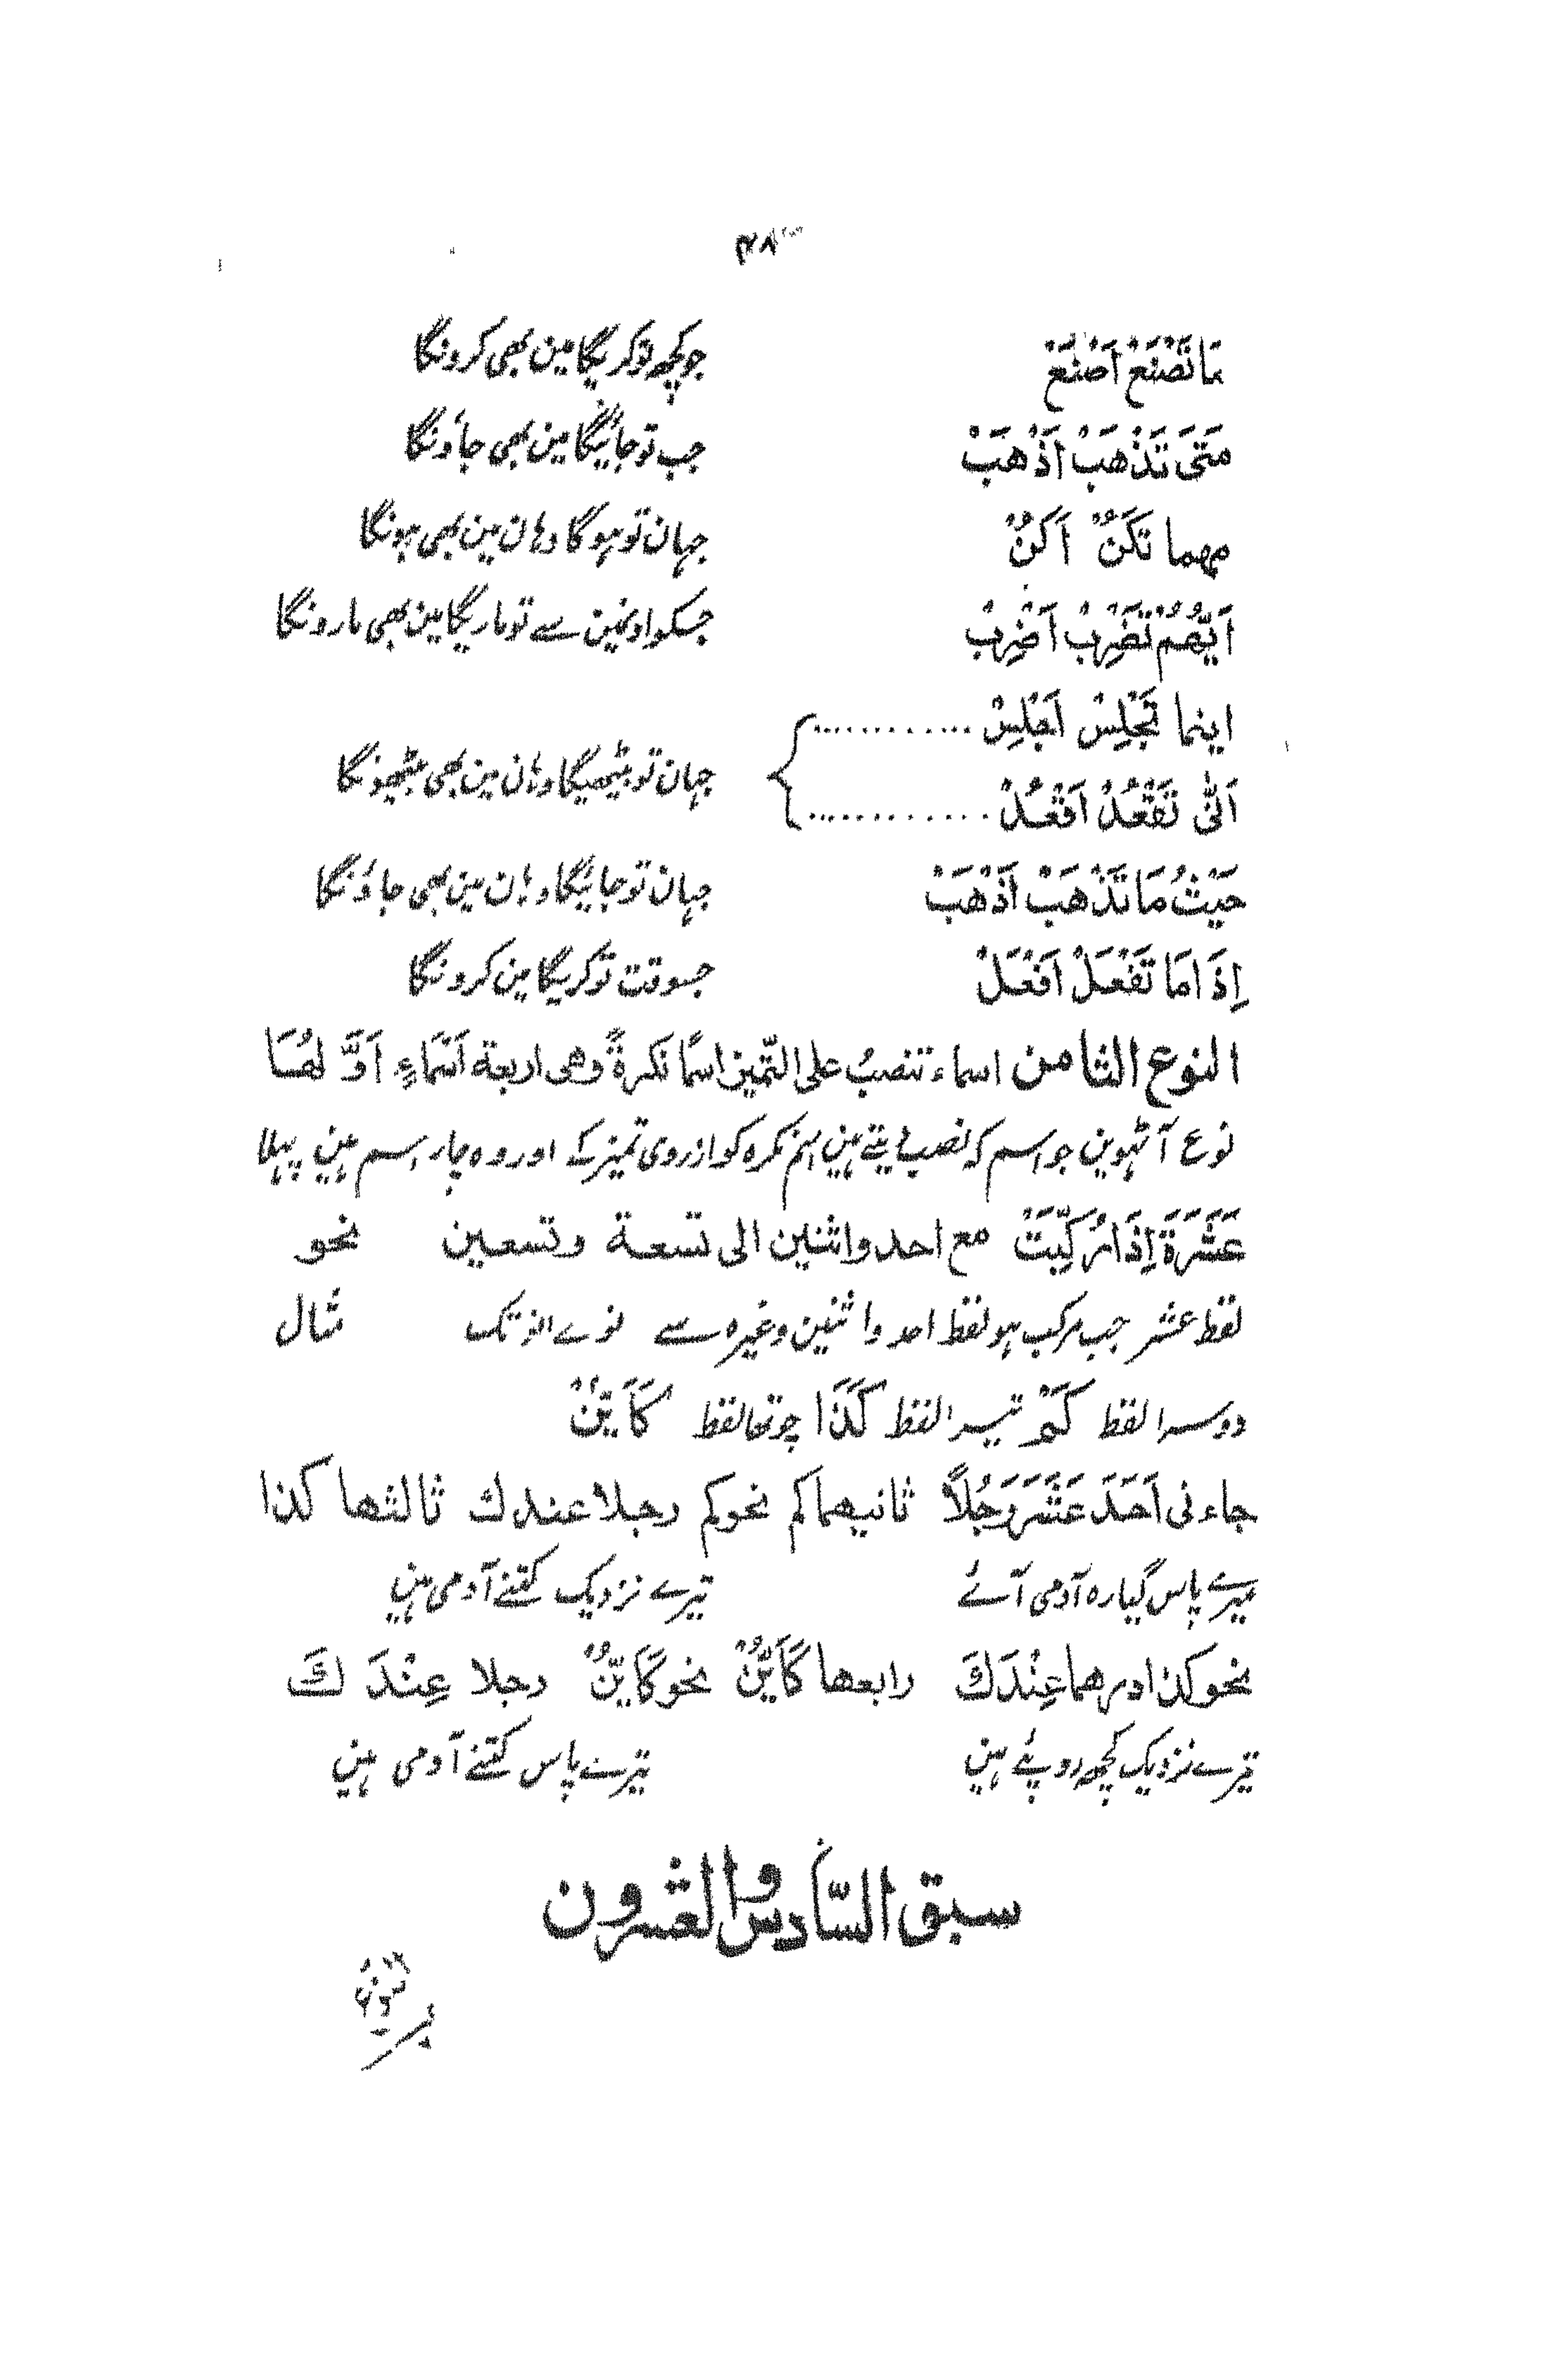 ۳۸
مَا تَصْنَعْ اَصْنَعْ جو کچھ تو کریگا مین بھی کرونگا
مَتَی تَذْهَبْ اَذْهَبْ جب تو جائیگا مین بھی جاؤنگا
مهما تَكُنْ اَكُنْ جہان تو ہوگا وہان مین بھی ہونگا
اَیُّهُمْ تَضْرِبْ اَضْرِبْ جسکو اونمین سے تو ماریگا مین بھی مارونگا
اینما تَجْلِسْ اَجْلِسْ ............
جہان تو بیٹھیگا وہان مین بھی بیٹھونگا
اَنّٰی تَقْعُدْ اَقْعُدْ ............
حَیْثُ مَا تَذْهَبْ اَذْهَبْ جہان تو جائیگا وہان مین بھی جاؤنگا
اِذَ امَا تَفْعَلْ اَفْعَلْ جسوقت تو کریگا مین کرونگا
النوع الثامن اسماء تنصبُ علی التّمیز اسمًا نکرةً وهی اربعة اَسْمَاءٍ اَوَّ لهُـَا
نوع آٹھوین جو اسم کہ نصب دیتے ہین اسم نکرہ کو از روی تمیز کے اور وہ چار اسم ہین پہلا
عَشَرَةَ اِذَا رُكِّبَتْ مع احد واثنین الی تسعة وتسعین نحو
لفظ عشر جب مرکب ہو لفظ احد و اثنین وغیرہ سے نوے انو تک مثال
دوسرا لفظ کَمْ تیسرا لفظ کَذَا چوتھا لفظ کَاَیِّنْ
جاءنی اَحَدَ عَشَرَ رَجُلاً ثانیهما کم نحو کم رجلا عندك ثالثها کذا
میرے پاس گیارہ آدمی آئے تیرے نزدیک کتنے آدمی ہین
نحو کذا درهما عِنْدَكَ رابعها کَاَیِّنْ نحو کَاَیِّنْ رجلا عِنْدَ كَ
تیرے نزدیک کچھ روپئے ہین تیرے پاس کتنے آدمی ہین
سبق السّادس والعشرون